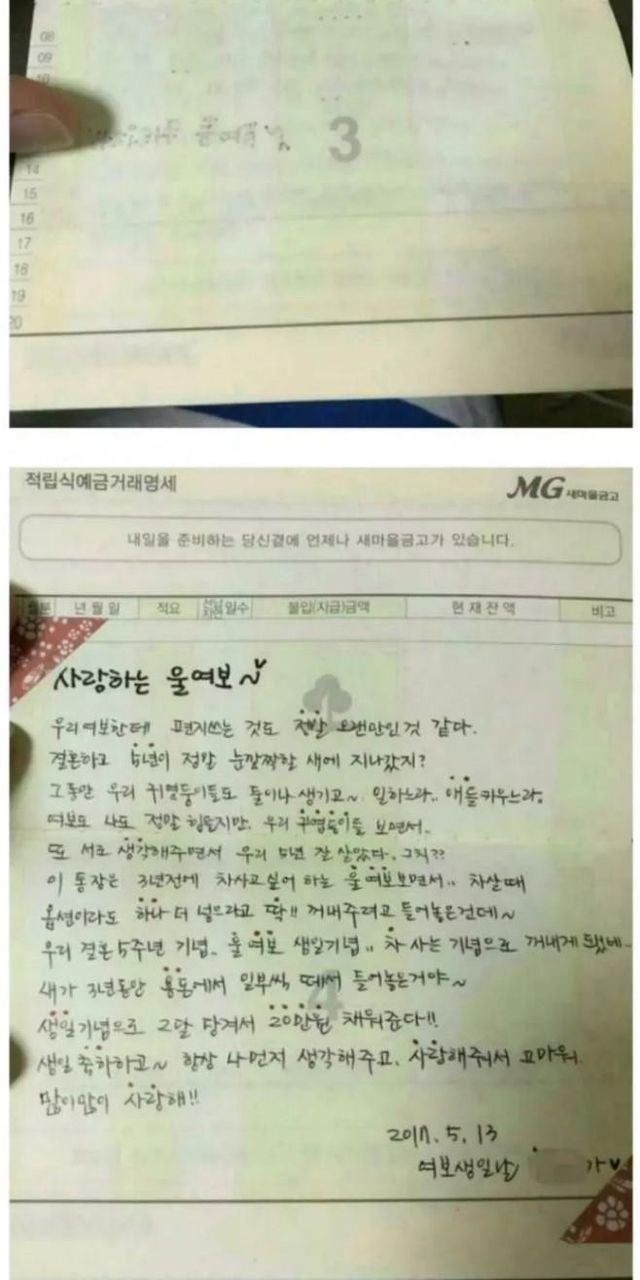 08
09
10
3
14
15
16
17
18
19
20
적립식예금거래명세
MG 새마을금고
내일을 준비하는 당신곁에 언제나 새마을금고가 있습니다.
년월일 적요 일수 불입(지급)금액 현재잔액 비고
사랑하는 울여보~♥
우리여보한테 편지쓰는 것도 정말 오랜만인것 같다.
결혼하고 5년이 정말 눈깜짝할 새에 지나갔지?
그동안 우리 귀염둥이들도 둘이나 생기고~ 일하느라.. 애들키우느라,
여보도 나도 정말 힘들지만, 우리 귀염둥이들 보면서..
또 서로 생각해주면서 우리 5년 잘 살았다. 그치??
이 통장은 3년전에 차사고싶어 하는 울 여보보면서.. 차살때
옵션이라도 하나 더 넣으라고 딱!! 꺼내주려고 들어놓은건데~
우리 결혼 5주년 기념.. 울 여보 생일기념.. 차 사는 기념으로 꺼내게 됐네..
내가 3년동안 용돈에서 일부씩 떼서 들어놓은거야~
4
생일기념으로 2달 당겨서 20만원 채워준다!!
생일 축하하고~ 항상 나먼저 생각해주고, 사랑해줘서 고마워.
많이많이 사랑해!!
2017. 5. 13
여보생일날 가♥